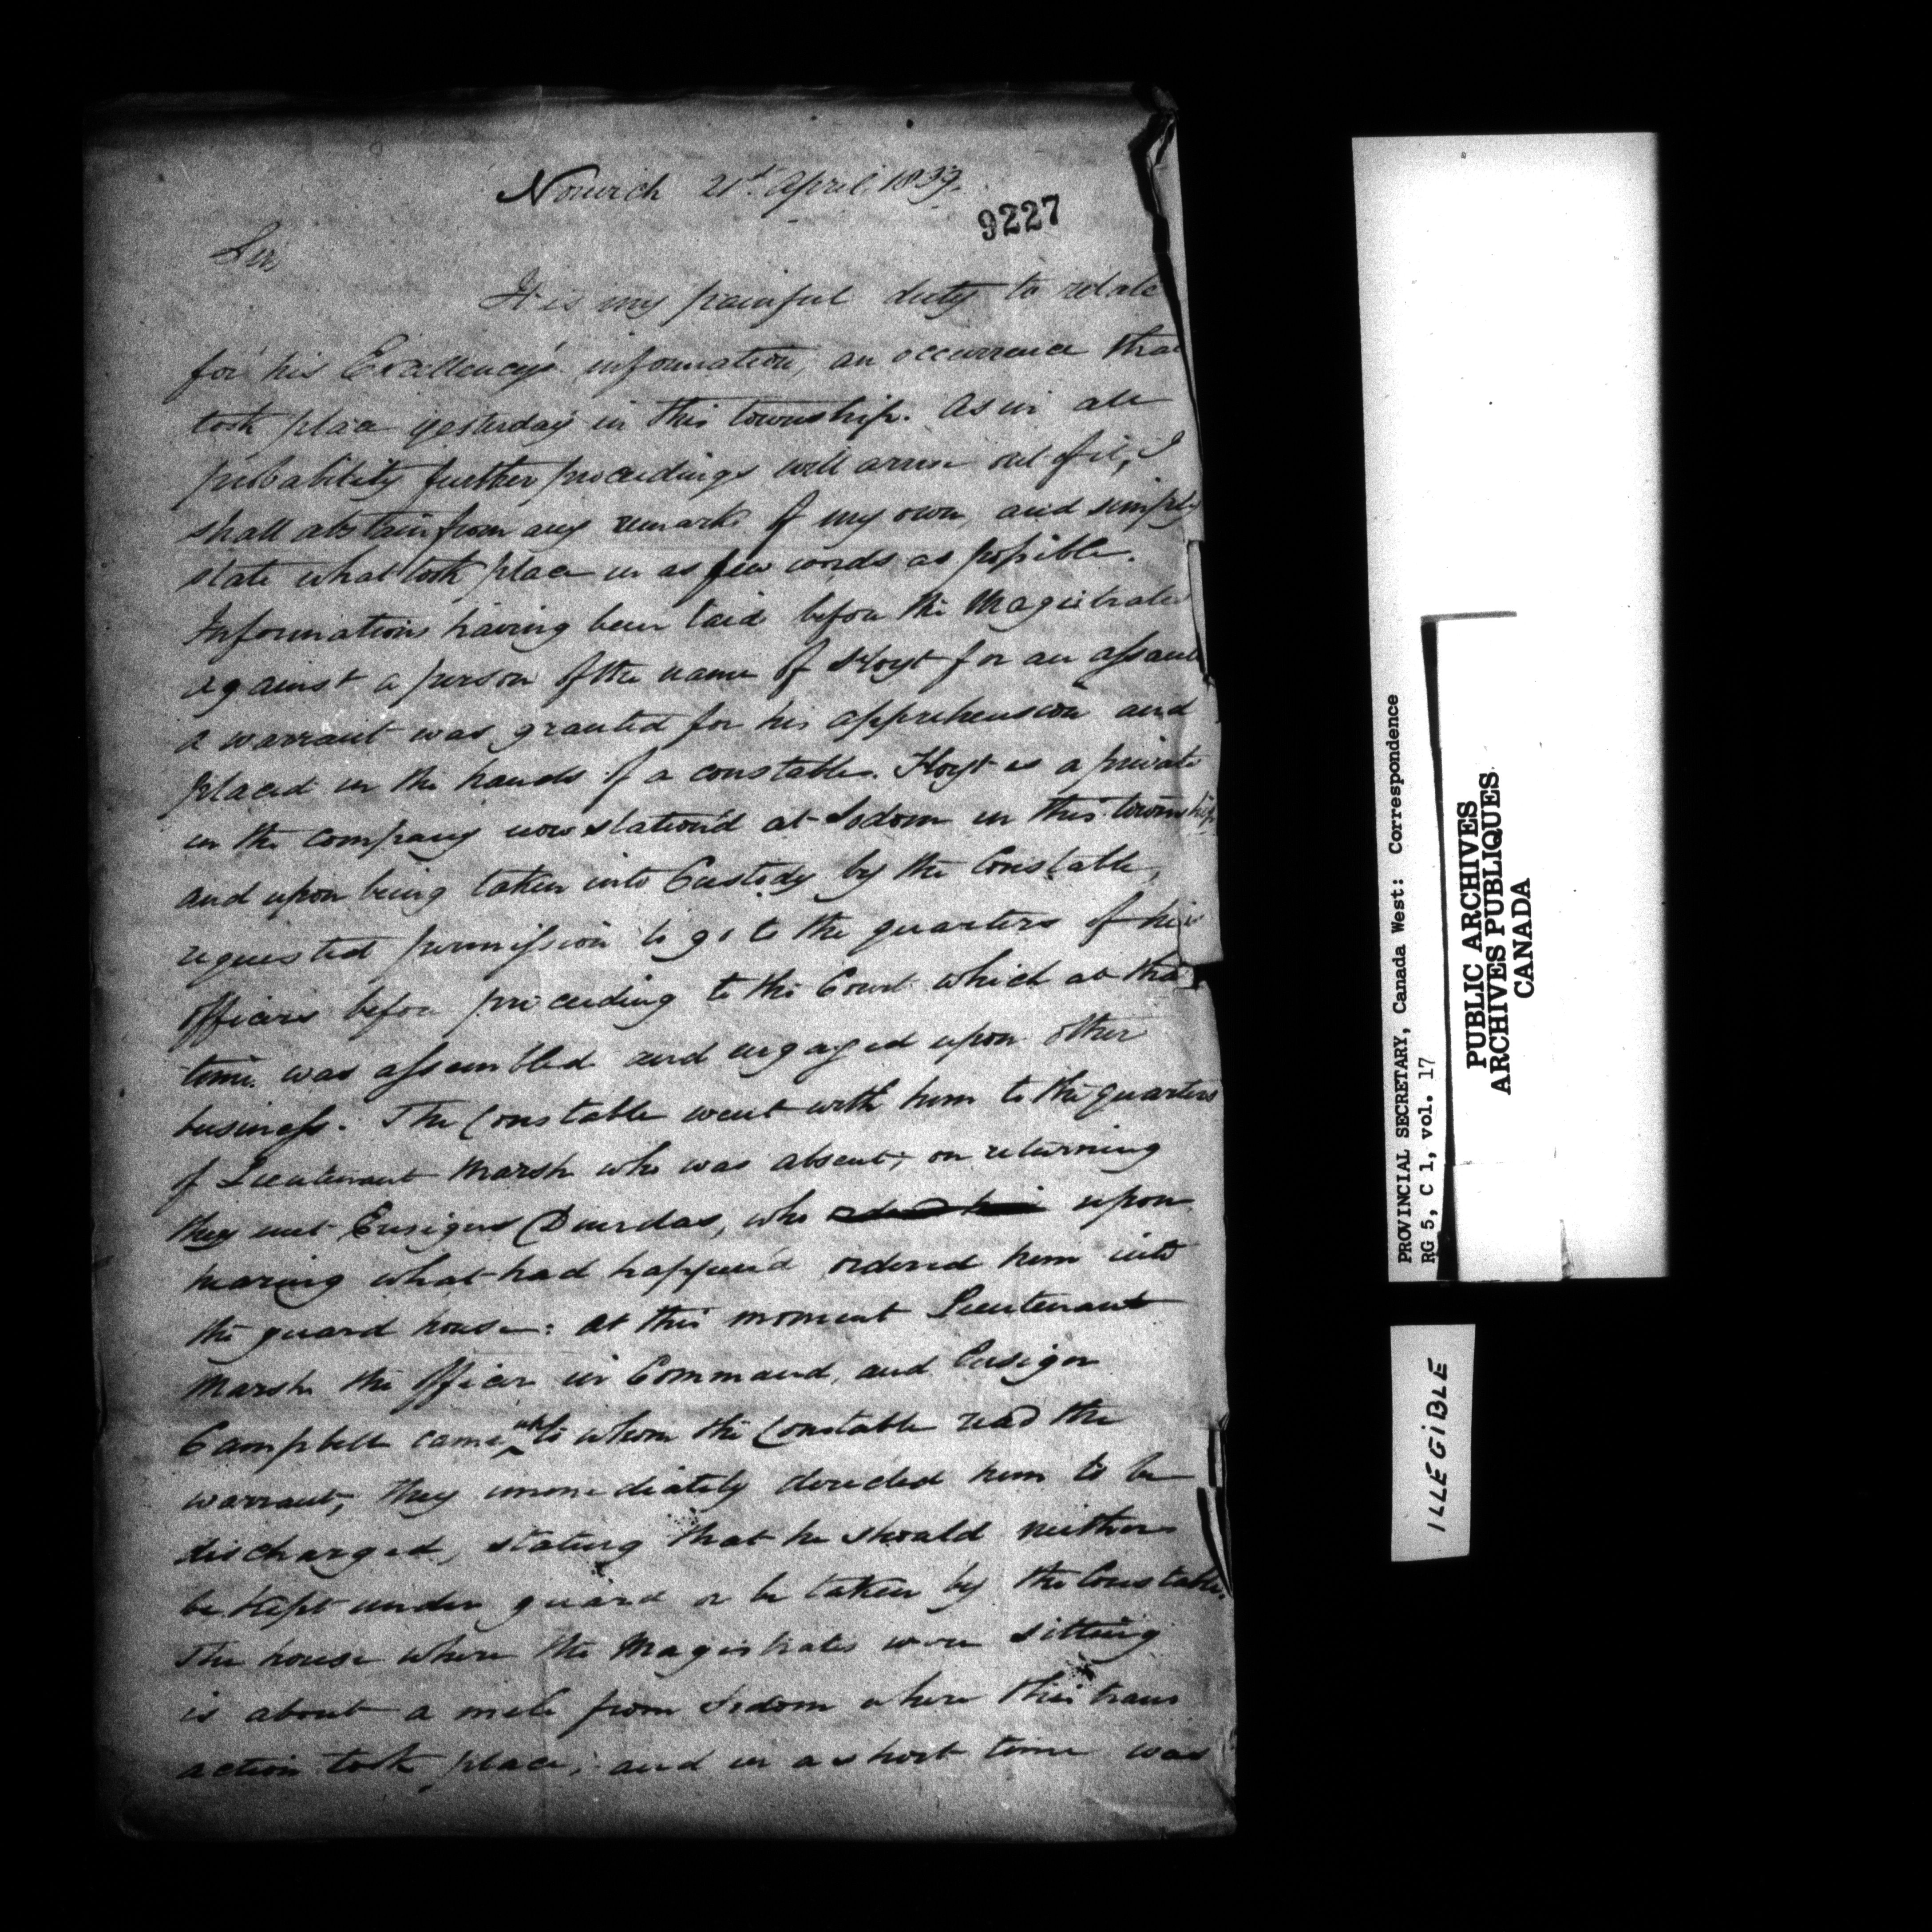 Norwich 21st April 1839.
9227
Sir,
It is my painful duty to relate
for his Excellency's information, an occurrence that
took place yesterday in this township. As in all
probability further proceedings will arise out of it, I
shall abstain from any remarks of my own, and simply
state what took place in as few words as possible.
Informations having been laid before the Magistrates
against a person of the name of Hoyt for an assault
a warrant was granted for his apprehension and
placed in the hands of a constable. Hoyt is a private
in the company now station'd at Sodom in this township
and upon being taken into Custody by the Constable,
requested permission to go to the quarters of his
officers before proceeding to the Court which at that
time was assembled and engaged upon other
business. The Constable went with him to the quarters
of Lieutenant Marsh who was absent; on returning
they met Ensigns Dundas, who upon
hearing what had happen'd ordered him into
the guard house: at this moment Lieutenant
Marsh the officer in Command, and Ensign
Campbell came up to whom the Constable read the
warrant; they immediately directed him to be
discharged, stating that he should neither
be kept under guard or be taken by the Constable.
The house where the Magistrates were sitting
is about a mile from Sodom where this trans
action took place; and in a short time was
PROVINCIAL SECRETARY, Canada West: Correspondence
RG 5, C 1, vol. 17
PUBLIC ARCHIVES
ARCHIVES PUBLIQUES
CANADA
ILLEGIBLE